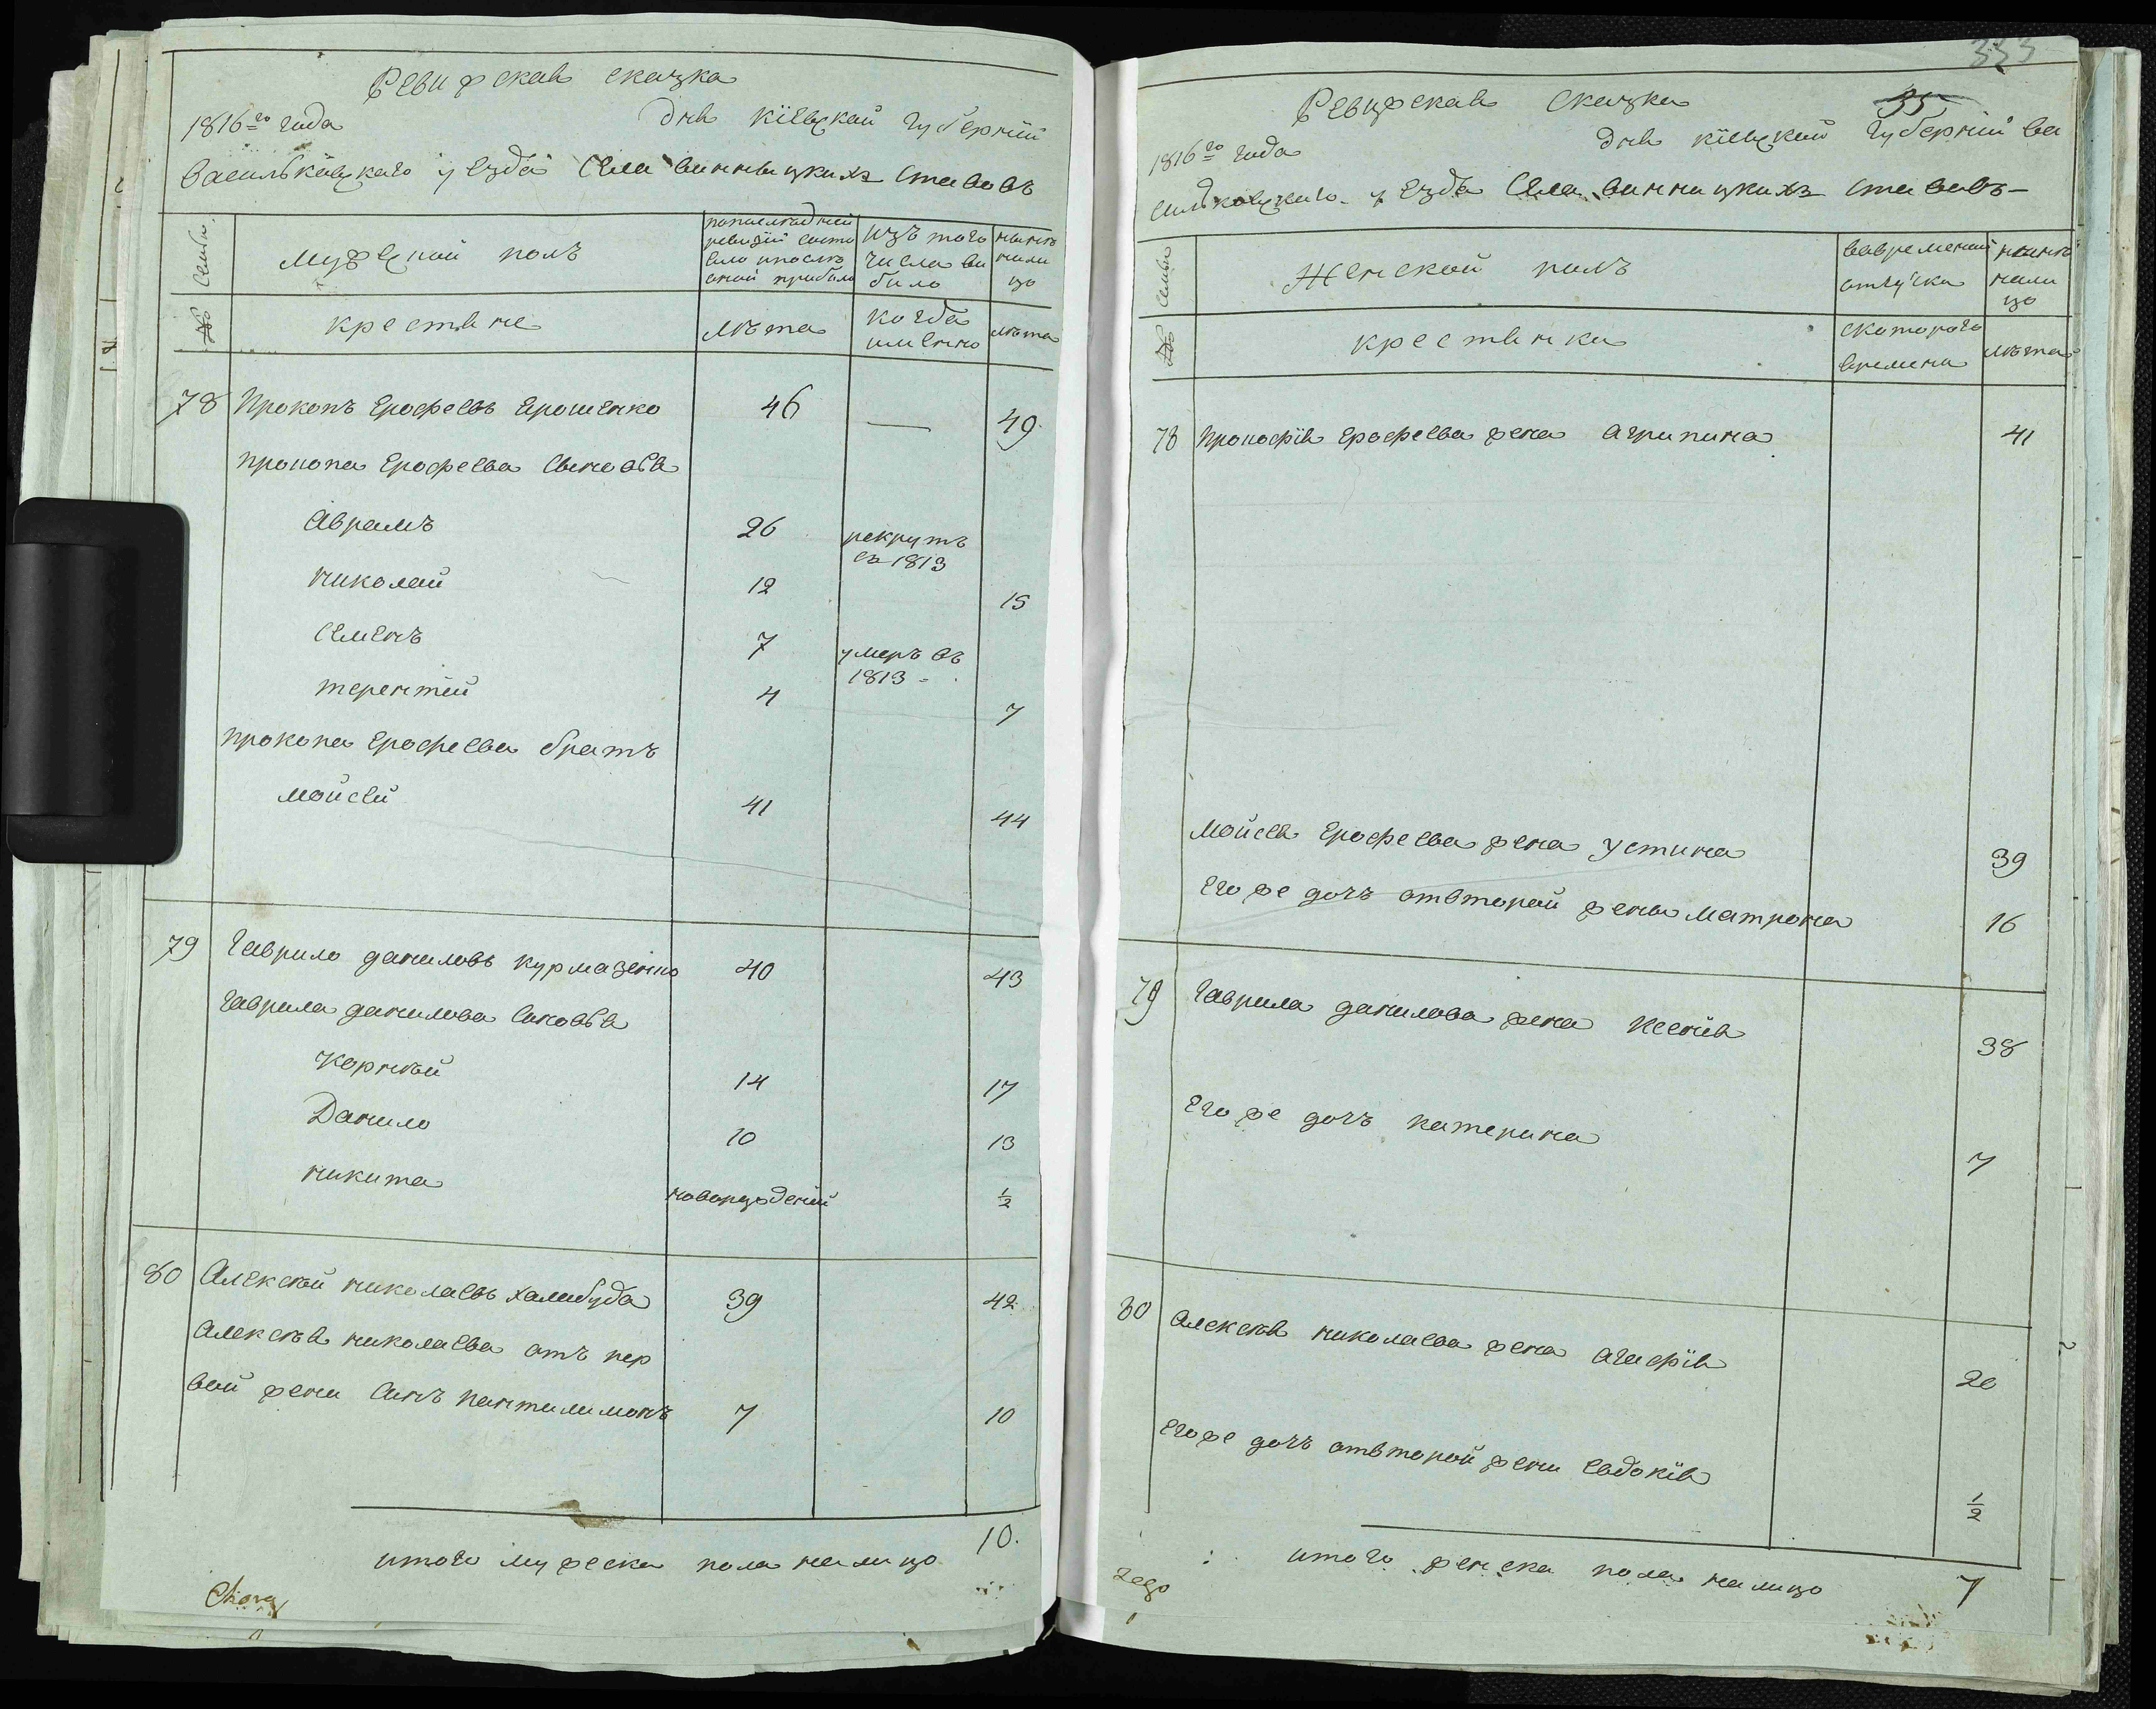 Ревижская сказка
1816го года дня кіевской губерніи
Васильковскаго уезда Села винницкихъ ставовъ
Семьи
мужеской полъ
попоследней
ревизіи состо
яло ипосле
оной прибыло
изъ того
числа вы
было
ныне
нали
цо
№
крестяне
лѣта
когда
именно
лѣта
78 Прокопъ Ерофеевъ Ерошенко 46 — 49.
прокопа Ерофеева Сыновья
Аврамъ 26 рекрутъ
въ 1813
николай 12 15
Семенъ 7 умеръ въ
1813 -
терентій 4 7
прокопа Ерофеева братъ
Мойсей 41 44
79 Гаврило даниловъ курмазенко 40 43
Гаврила данилова Сыновья
Корнѣй 14 17
Данило 10 13
никита новорожденій 1/2
80 Алексѣй николаевъ халабуда 39 42
Алексѣя николаева отъ пер
вой жени Синъ пантилимонъ 7 10
итого мужеска пола налицо 10.
333
35
Ревижская Сказка
1816го года дня кіевской губерніи ва
сильковскаго уезда Села винницкихъ ставовъ
Семьи
Женской полъ
вовременой
отлучки
ныне
нали
цо
№
крестянки
скоторого
времени
лѣта
78 Прокофія Ерофеева жена Агрипина 41
Мойсея Ерофеева жена Устина 39
Его же дочъ отвторой жени Матрона 16
79 Гаврила данилова жена Ксенія 38
Его же дочъ катерина 7
80 Алексѣя николаева жена Агафія 20
Егоже дочъ отвторой жени Евдокія 1/2
итого женска пола налицо 7